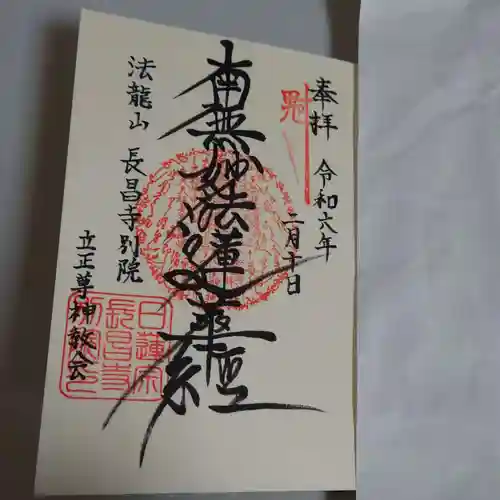 奉拝 令和六年
二月十日
南無妙法蓮華経
法龍山 長昌寺別院
立正尊神教会
日蓮宗
長昌寺